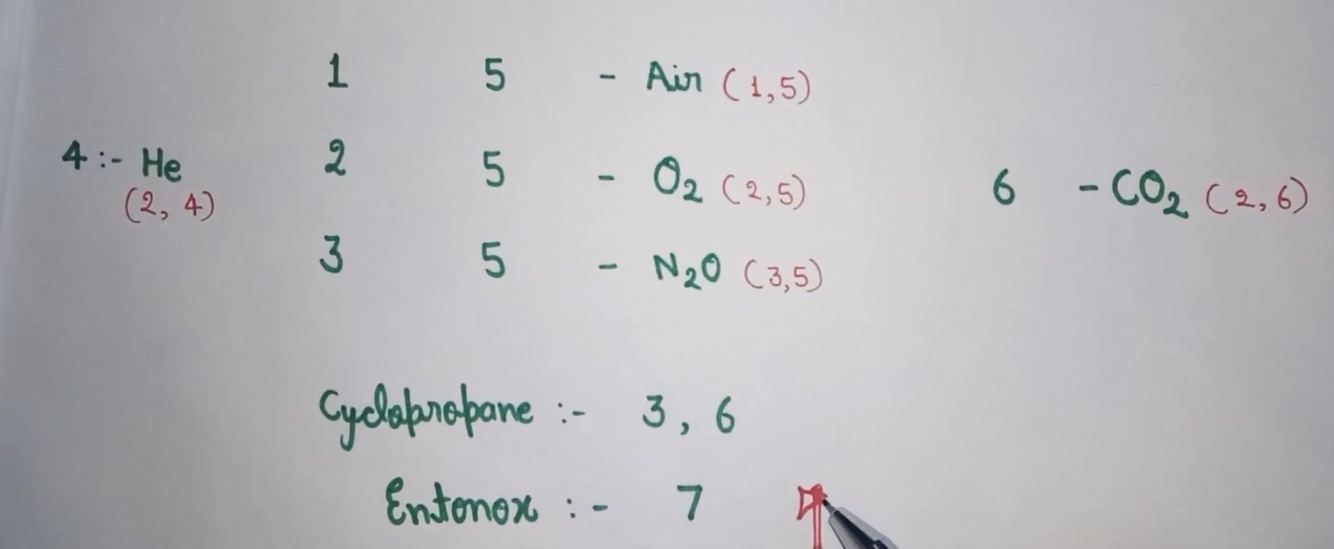 1 5 - Air (1,5)
4 :- He 2 5 - O₂ (2,5) 6 - CO₂ (2,6)
(2, 4)
3 5 - N₂O (3,5)
Cyclopropane :- 3, 6
Entonox :- 7